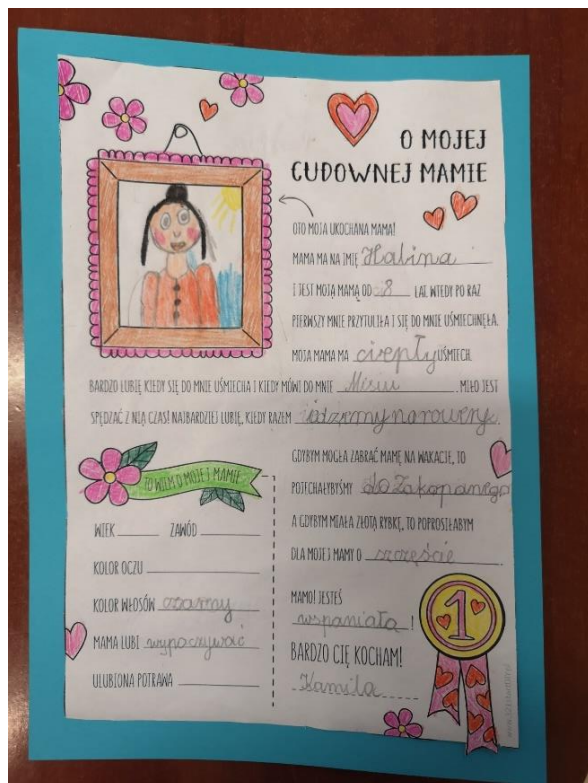 O MOJEJ
CUDOWNEJ MAMIE
OTO MOJA UKOCHANA MAMA!
MAMA MA NA IMIĘ Halina
I JEST MOJĄ MAMĄ OD 8 LAT. WTEDY PO RAZ
PIERWSZY MNIE PRZYTULIŁA I SIĘ DO MNIE UŚMIECHNĘŁA.
MOJA MAMA MA ciepły UŚMIECH.
BARDZO LUBIĘ KIEDY SIĘ DO MNIE UŚMIECHA I KIEDY MÓWI DO MNIE Misiu. MIŁO JEST
SPĘDZAĆ Z NIĄ CZAS! NAJBARDZIEJ LUBIĘ, KIEDY RAZEM idziemy na rowery.
GDYBYM MOGŁA ZABRAĆ MAMĘ NA WAKACJE, TO
POJECHAŁYBYŚMY do Zakopanego
A GDYBYM MIAŁA ZŁOTĄ RYBKĘ, TO POPROSIŁABYM
DLA MOJEJ MAMY O szczęście.
MAMO! JESTEŚ
wspaniała!
BARDZO CIĘ KOCHAM!
Kamila
1
TO WIEM O MOJEJ MAMIE
WIEK ZAWÓD
KOLOR OCZU
KOLOR WŁOSÓW czarny
MAMA LUBI wypoczywać
ULUBIONA POTRAWA